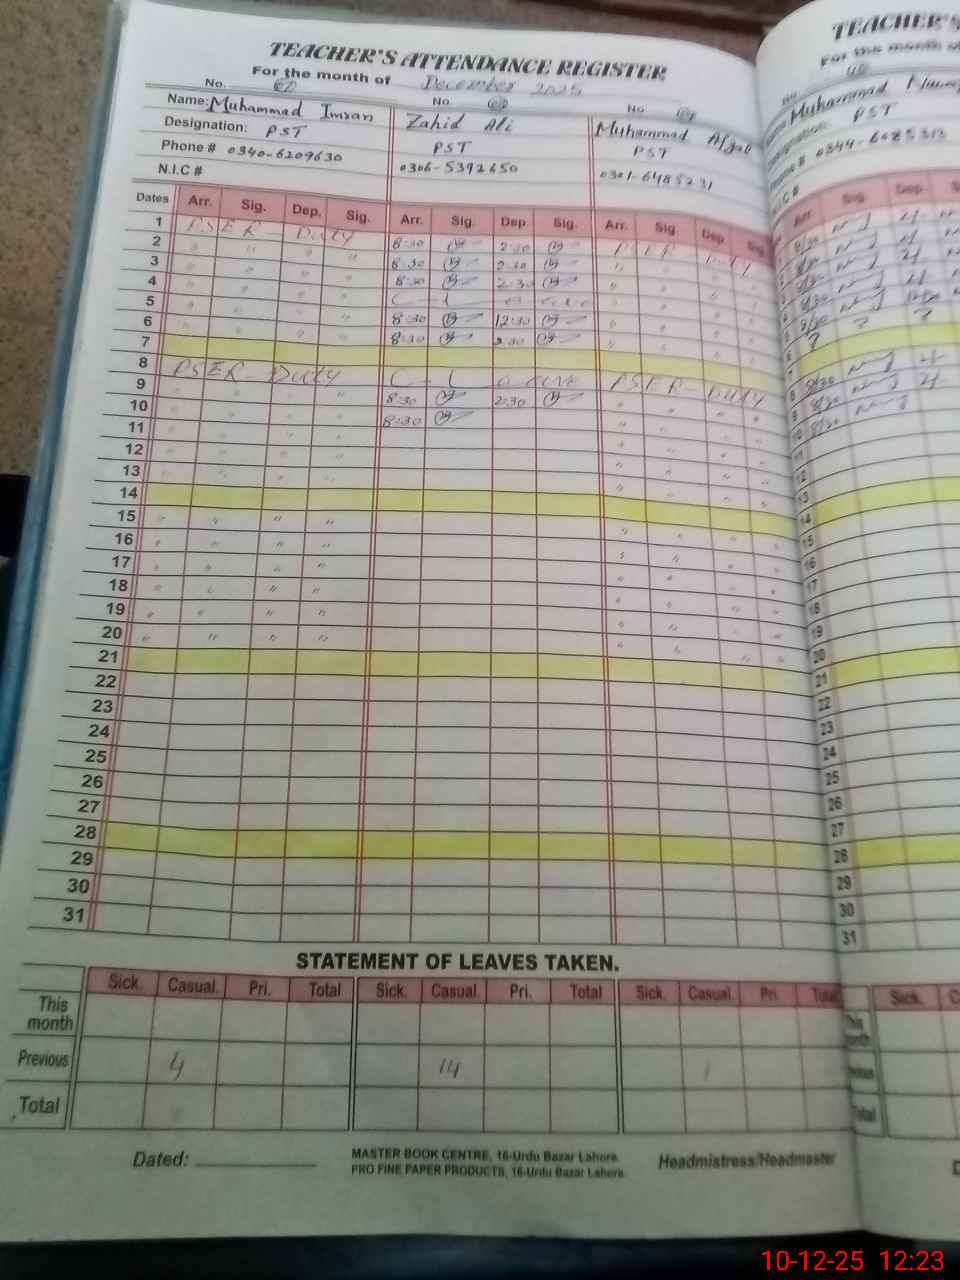 TEACHER'S ATTENDANCE REGISTER
For the month of December 2025
No. No No
Name: Muhammad Imran Zahid Ali Muhammad Afzal
Designation: PST PST PST
Phone # 0340-6209630 0306-5392650 0301-6485231
N.I.C #
Dates Arr. Sig. Dep. Sig. Arr. Sig. Dep. Sig. Arr. Sig. Dep. Sig.
1 PSER - Duty 8:30 2:30 PSER Duty
2 " " " " 8:30 2:30 " " " "
3 " " " " 8:30 2:30 " " " "
4 " " " " C - L " " " "
5 " " " " 8:30 12:30 " " " "
6 " " 8:30 2:30 " " " "
7
8 PSER - Duty C - L PSER - Duty
9 " " " " 8:30 2:30 " " " "
10 " " " " 8:30 " " " "
11 " " " " " " " "
12 " " " " " " " "
13 " " " " " " " "
14
15 " " " " " " " "
16 " " " " " " " "
17 " " " " " " " "
18 " " " " " " " "
19 " " " " " " " "
20 " " " " " " " "
21
22
23
24
25
26
27
28
29
30
31
STATEMENT OF LEAVES TAKEN.
Sick. Casual. Pri. Total Sick. Casual. Pri. Total Sick. Casual Pri. Total
This month
Previous 4 14 1
Total
Dated: MASTER BOOK CENTRE, 16-Urdu Bazar Lahore. Headmistress/Headmaster
PRO FINE PAPER PRODUCTS, 16-Urdu Bazar Lahore.
TEACHER'S
For the month of
Muhammad
PST
Phone # 0344-6085313
N.I.C #
Arr. Sig. Dep.
1 8/30
2 8/30
3 8/30
4 8/30
5 8/30
6 ? ? ?
7
8 8/30
9 8/30
10 8/30
11
12
13
14
15
16
17
18
19
20
21
22
23
24
25
26
27
28
29
30
31
Sick.
This month
Total
10-12-25 12:23